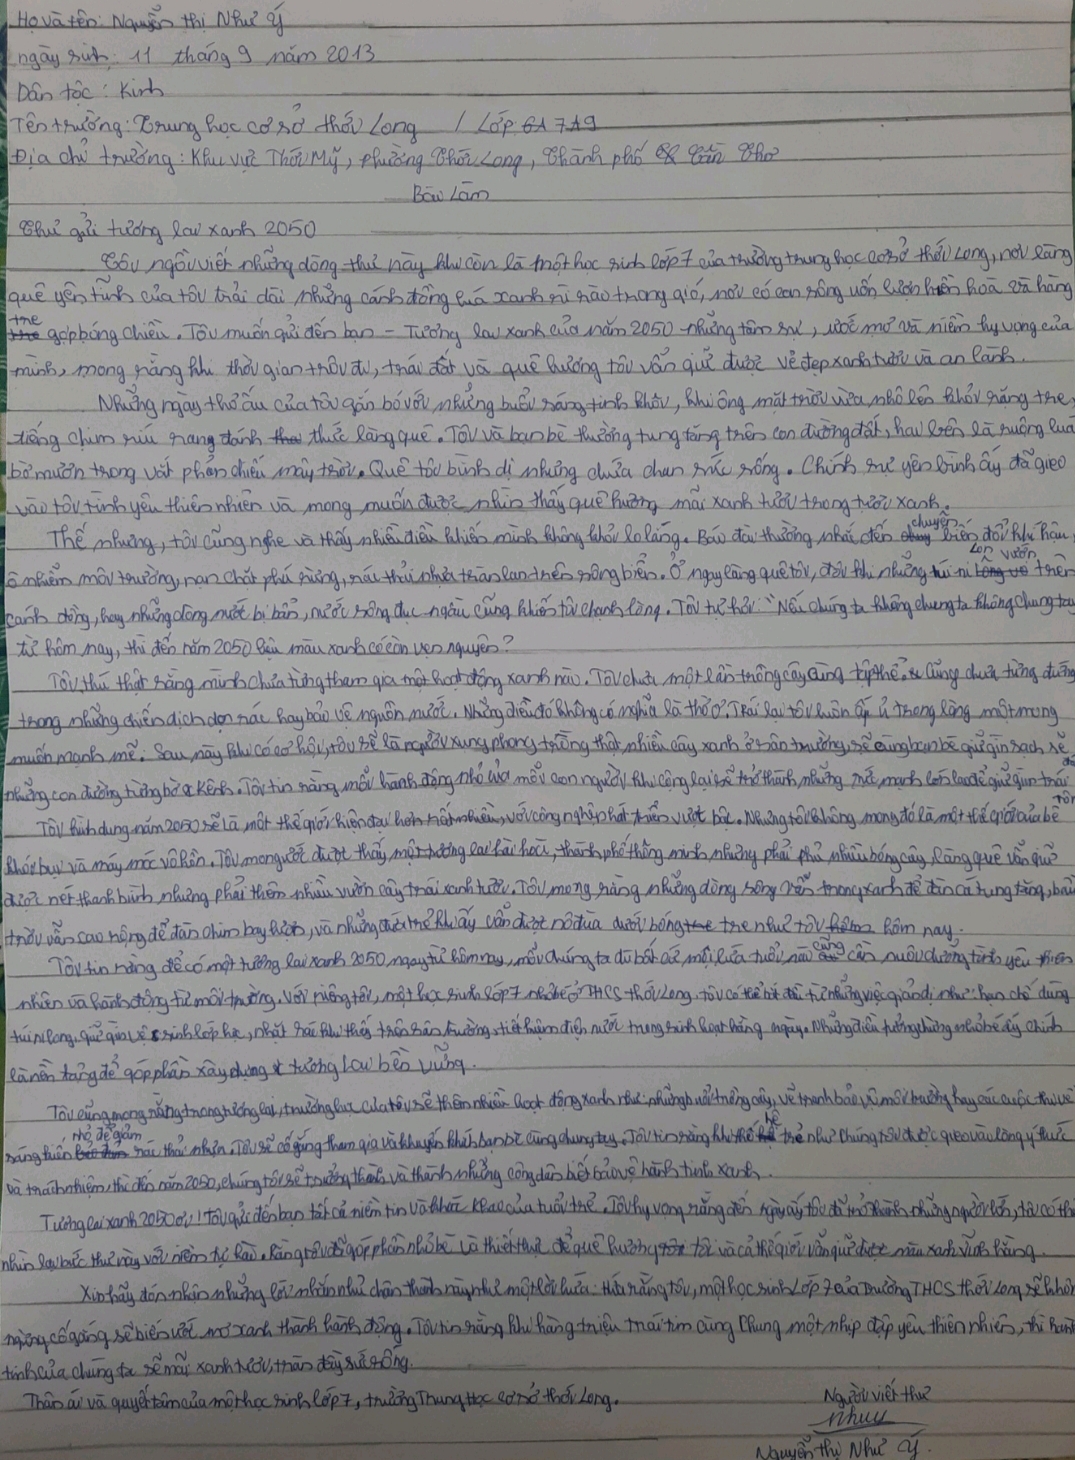 Họ và tên: Nguyễn Thị Như Ý
ngày sinh: 11 tháng 9 năm 2013
Dân tộc: Kinh
Tên trường: Trung học cơ sở thới Long / Lớp 6A 7A9
Địa chỉ trường: Khu vực Thới Mỹ, phường Thới Long, Thành phố Cần Thơ
Bài Làm
Thư gửi tương lai xanh 2050
Tôi ngồi viết những dòng thư này khi còn là một học sinh lớp 7 của trường trung học cơ sở thới Long, nơi làng
quê yên tĩnh của tôi trải dài những cánh đồng lúa xanh rì rào trong gió, nơi có con sông uốn lượn hiền hoà và hàng
tre góp bóng chiều. Tôi muốn gửi đến bạn - Tương lai xanh của năm 2050 những tâm sự, ước mơ và niềm hy vọng của
mình, mong rằng khi thời gian trôi đi, trái đất và quê hương tôi vẫn giữ được vẻ đẹp xanh tươi và an lành.
Những ngày thơ ấu của tôi gắn bó với những buổi sáng tinh khôi, khi ông mặt trời vừa nhô lên khỏi rặng tre,
tiếng chim ríu rang đánh thức làng quê. Tôi và bạn bè thường tung tăng trên con đường đất, hai bên là ruộng lúa
bờ mươn trong vắt phản chiếu mây trời. Quê tôi bình dị nhưng chứa chan sức sống. Chính sự yên bình ấy đã gieo
vào tôi tình yêu thiên nhiên và mong muốn được nhìn thấy quê hương mãi xanh tươi trong tươi xanh.
Thế nhưng, tôi cũng nghe và thấy nhiều điều khiến mình không khỏi lo lắng. Báo đài thường nhắc đến chuyện biến đổi khí hậu,
ô nhiễm môi trường, nạn chặt phá rừng, rác thải nhựa tràn lan trên sông biển. Ở ngay làng quê tôi, đôi khi những túi ni Lon vướn trên
cánh đồng, hay những dòng nước bị bẩn, nước sông đục ngàu cũng khiến tôi chạnh lòng. Tôi tự hỏi: "Nếu chúng ta không chung ta không chung tay
từ hôm nay, thì đến năm 2050 liệu màu xanh có còn vẹn nguyên?
Tôi thú thật rằng mình chưa từng tham gia một hoạt động xanh nào. Tôi chưa một lần trồng cây cùng tập thể, cũng chưa từng đứng
trong những chiến dịch dọn rác hay bảo vệ nguồn nước. Những điều đó không có nghĩa là thờ ơ. Trái lại tôi luôn ấp ủ trong lòng một mong
muốn mạnh mẽ. Sau này khi có cơ hội, tôi sẽ là người xung phong trồng thật nhiều cây xanh ở sân trường, sẽ cùng bạn bè giữ gìn sạch sẽ
những con đường từng bờ Kênh. Tôi tin rằng mỗi hành động nhỏ của mỗi con người khi cộng lại sẽ trở thành những sức mạnh lớn lao để giữ gìn trái
Tôi hình dung năm 2050 sẽ là một thế giới hiện đại hơn rất nhiều, với công nghệ phát triển vượt bậc. Nhưng tôi không mong đó là một thế giới của bê tôn
khói bụi và máy móc vô hồn. Tôi mong ước được thấy một tương lai hài hoà, thành phố thông minh nhưng phải phủ nhiều bóng cây, làng quê vẫn giữ
được nét thanh bình nhưng phải thêm nhiều vườn cây trái xanh tươi. Tôi mong rằng những dòng sông vẫn trong xanh để đàn cá tung tăng, bầu
trời vẫn cao rộng để đàn chim bay lượn, và những đứa trẻ khi ấy vẫn được nô đùa dưới bóng tre như tôi hôm nay.
Tôi tin rằng để có một tương lai xanh 2050 ngay từ hôm nay, mỗi chúng ta dù bất cứ một lứa tuổi nào cũng cần nuôi dưỡng tình yêu thiên
nhiên và hành động từ môi trường. Với riêng tôi, một học sinh lớp 7 nhỏ bé ở THCS thới Long, tôi có thể bắt đầu từ những việc giản dị như: hạn chế dùng
túi ni long, giữ gìn vệ sinh lớp học, nhặt rác khi thấy trên sân trường, tiết kiệm điện nước trong sinh hoạt hàng ngày. Những điều tưởng chừng nhỏ bé ấy chính
là nền tảng để góp phần xây dựng tương Lai bền vững.
Tôi cũng mong rằng trong tương lai, trường học của tôi sẽ thêm nhiều hoạt động xanh như: những buổi trồng cây, vẽ tranh bảo vệ môi trường hay các cuộc thi về
sáng kiến nhỏ để giảm rác thải nhựa. Tôi sẽ cố gắng tham gia và khuyến khích bạn bè cùng chung tay. Tôi tin rằng khi thế hệ trẻ như chúng tôi được gieo vào lòng ý thức
và trách nhiệm, thì đến năm 2050, chúng tôi sẽ trưởng thành và thành những công dân biết bảo vệ hành tinh xanh.
Tương lai xanh 2050 ơi! Tôi gửi đến bạn tất cả niềm tin và khát khao của tuổi trẻ. Tôi hy vọng rằng đến ngày ấy tôi đã trở thành những người lớn, tôi có thể
nhìn lại bức thư này với niềm tự hào. Rằng tôi đã góp phần nhỏ bé và thiết thực để quê hương tôi và cả thế giới vẫn giữ được màu xanh vĩnh hằng.
Xin hãy đón nhận những lời nhắn nhủ chân thành này như một lời hứa: Hứa rằng tôi, một học sinh Lớp 7 của Trường THCS thới Long sẽ khôn
ngừng cố gắng sẽ biến ước mơ xanh thành hành động. Tôi tin rằng khi hàng triệu trái tim cùng Chung một nhịp đập yêu thiên nhiên, thì hành
tinh của chúng ta sẽ mãi xanh tươi, tràn đầy sức sống.
Thân ái và quyết tâm của một học sinh lớp 7, trường Trung Học cơ sở thới Long.
Người viết thư
Nhuy
Nguyễn Thị Như Ý.